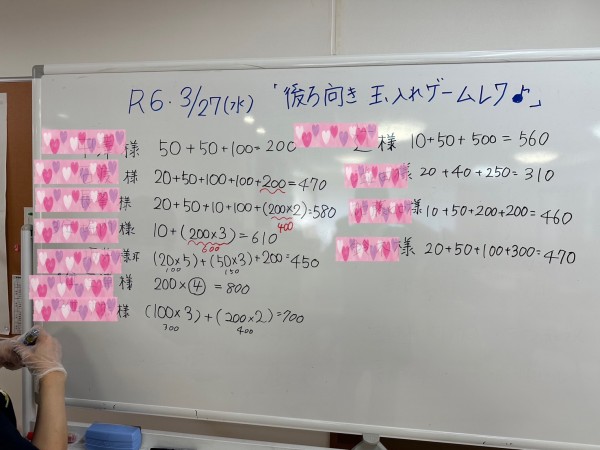 R6.3/27(水) 「後ろ向き 玉入れゲームレク♪」
様 50+50+100=200
様 20+50+100+100+200=470
様 20+50+10+100+(200×2)=580
400
様 10+(200×3)=610
600
様 (20×5)+(50×3)+200=450
100 150
様 200×④=800
様 (100×3)+(200×2)=700
300 400
様 10+50+500=560
様 20+40+250=310
様 10+50+200+200=460
様 20+50+100+300=470